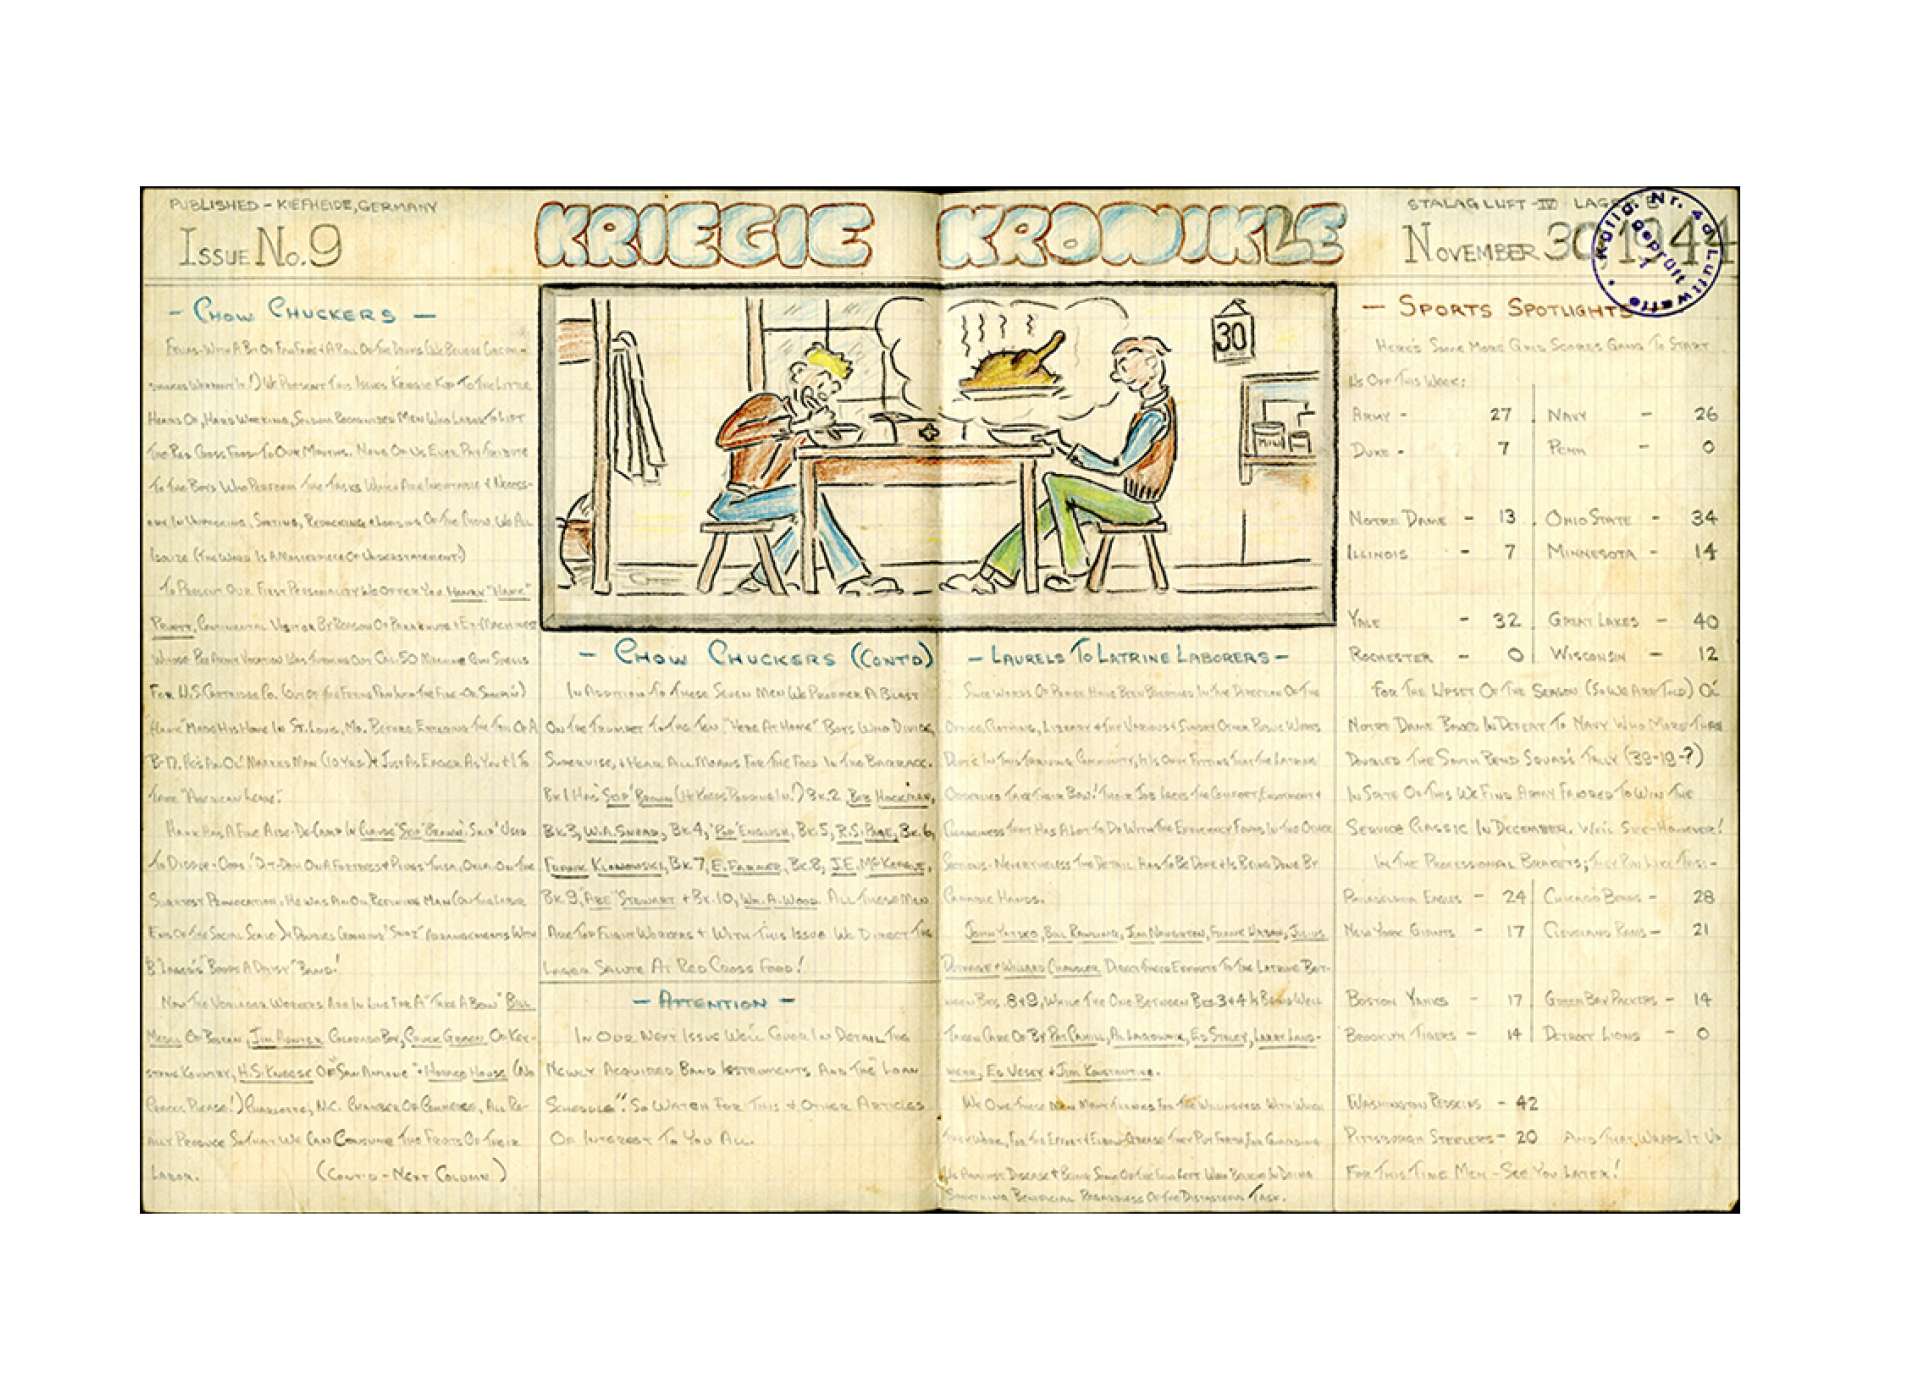 PUBLISHED - KIEFHEIDE, GERMANY
ISSUE No. 9
KRIEGIE KRONIKLE
STALAG LUFT - IV - LAGER
NOVEMBER 30, 1944
Kgflg. Nr. 4 d. Luftwaffe
geprüft
- CHOW CHUCKERS -
FOLKS - WITH A BIT OF FANFARE & A ROLL OF THE DRUMS (WE BELIEVE CIRCUM-
STANCES WARRANT IT!) WE PRESENT THIS ISSUES KRIEGIE KUP TO THE LITTLE
HEARD OF, HARD WORKING, SELDOM RECOGNIZED MEN WHO LABOR TO LIFT
THE RED CROSS FOOD TO OUR MOUTHS. NONE OF US EVER PAY TRIBUTE
TO THE BOYS WHO PERFORM THE TASKS WHICH ARE INEVITABLE & NECESS-
ARY IN UNPACKING, SORTING, REPACKING & LOADING OF THE CHOW WE ALL
(THE WORD IS A MASTERPIECE OF UNDERSTATEMENT!)
TO PRESENT OUR FIRST PERSONALITY WE OFFER YOU HENRY "HANK"
CONTINENTAL VISITOR BY REASON OF PARACHUTE & EX-MACHINIST
WHOSE PRE ARMY VOCATION WAS TURNING OUT CAL. 50 MACHINE GUN SHELLS
FOR U.S. CARTRIDGE CO. (OUT OF THE FRYING PAN INTO THE FIRE - OR SUMPIN')
"HANK" MADE HIS HOME IN ST. LOUIS, MO. BEFORE ENTERING THE TON OF A
B-17. HE'S AN OL' MARRIED MAN (10 YRS.) & JUST AS EAGER AS YOU & I TO
TAKE "AMERICAN LEAVE".
HANK HAS A FINE AIDE-DE-CAMP IN CLAUDE "SKIP" BROWN. "SKIP" USED
TO OUR FORTRESS & ON THE
SLIGHTEST PROVOCATION. HE WAS AN OIL REFINING MAN (ON THE LABOR
END OF THE SOCIAL SCALE) & DOUBLES ARRANGEMENTS WITH
B LAGER'S BAND!
NOW THE VORLAGER WORKERS ARE IN LINE FOR A "TAKE A BOW" BILL
OF BOSTON, JIM HUNTER COLORADO BOY, CHUCK GREEN OF KEY-
STONE KOUNTRY, H.S. KNEESE OF "SAN ANTONE" & HOUSE (NO
PLEASE!) CHARLOTTE, N.C. CHAMBER OF COMMERCE, ALL RE-
ALLY PRODUCE SO THAT WE CAN CONSUME THE FRUITS OF THEIR
LABOR. (CONT'D - NEXT COLUMN)
30
MILK
- CHOW CHUCKERS (CONT'D)
IN ADDITION TO THESE SEVEN MEN WE PROFFER A BLAST
ON THE TRUMPET TO THE TEN, "HERE AT HOME" BOYS WHO DIVIDE,
SUPERVISE, & HEAR ALL MOANS FOR THE FOOD IN THE BARRACK.
BK. 1 HAS "SKIP" BROWN (HE KEEPS POPPING IN!) BK. 2, BOB HOCKMAN,
BK. 3, W.A. SNEAD, BK. 4, "POP" ENGLISH, BK. 5, R.S. PAGE, BK. 6,
FRANK KLONOWSKI, BK. 7, E. FARMER, BK. 8, J.E. McKENZIE,
BK. 9, "ABE" STEWART & BK. 10, WM. A. WOOD. ALL THESE MEN
ARE TOP FLIGHT WORKERS & WITH THIS ISSUE WE DIRECT THE
LAGER SALUTE AT RED CROSS FOOD!
- ATTENTION -
IN OUR NEXT ISSUE WE'LL COVER IN DETAIL THE
NEWLY ACQUIRED BAND INSTRUMENTS AND THE "LOAN
SCHEDULE". SO WATCH FOR THIS & OTHER ARTICLES
OF INTEREST TO YOU ALL.
- LAURELS TO LATRINE LABORERS -
SINCE WORDS OF PRAISE HAVE BEEN BREATHED IN THE DIRECTION OF THE
OFFICE, CLOTHING, LIBRARY & THE VARIOUS & SUNDRY OTHER PUBLIC WORKS
DONE IN THIS THRIVING COMMUNITY, IT IS ONLY FITTING THAT THE LATRINE
ORDERLIES TAKE THEIR BOW! THEIR JOB LACKS THE COMFORT, ENJOYMENT &
CLEANLINESS THAT HAS A LOT TO DO WITH THE EFFICIENCY FOUND IN THE OTHER
SECTIONS - NEVERTHELESS THE DETAIL HAS TO BE DONE & IS BEING DONE BY
CAPABLE HANDS.
JOHN YATSKO, BILL RAWLING, JIM NAUGHTEN, FRANK URBAN, JULIUS
& WILLARD CHANDLER DIRECT THEIR EFFORTS TO THE LATRINE BET-
WEEN BKS. 8 & 9, WHILE THE ONE BETWEEN BKS 3 & 4 IS BEING WELL
TAKEN CARE OF BY PAT CAHILL, AL ED STALEY, LARRY
ED VESEY & JIM
WE OWE THESE MEN MANY THANKS FOR THE WILLINGNESS WITH WHICH
THEY WORK, FOR THE EFFORT & ELBOW GREASE THEY PUT FORTH, FOR GUARDING
US AGAINST DISEASE & BEING SOME OF THE FEW LEFT WHO BELIEVE IN DOING
SOMETHING BENEFICIAL REGARDLESS OF THE DISTASTEFUL TASK.
- SPORTS SPOTLIGHTS
HERE'S SOME MORE GRID SCORES GANG TO START
US OFF THIS WEEK:
ARMY - 27 NAVY - 26
DUKE - 7 PENN - 0
NOTRE DAME - 13 OHIO STATE - 34
ILLINOIS - 7 MINNESOTA - 14
YALE - 32 GREAT LAKES - 40
ROCHESTER - 0 WISCONSIN - 12
FOR THE UPSET OF THE SEASON (SO WE ARE TOLD) OL'
NOTRE DAME BOWED IN DEFEAT TO NAVY WHO MORE THAN
DOUBLED THE SOUTH BEND SQUAD'S TALLY (39-19-?)
IN SPITE OF THIS WE FIND ARMY FAVORED TO WIN THE
SERVICE CLASSIC IN DECEMBER. WE'LL SEE - HOWEVER!
IN THE PROFESSIONAL BRACKETS; THEY RUN LIKE THIS: -
PHILADELPHIA EAGLES - 24 CHICAGO BEARS - 28
NEW YORK GIANTS - 17 CLEVELAND RAMS - 21
BOSTON YANKS - 17 GREEN BAY PACKERS - 14
BROOKLYN TIGERS - 14 DETROIT LIONS - 0
WASHINGTON REDSKINS - 42
PITTSBURGH STEELERS - 20 AND THAT WRAPS IT UP
FOR THIS TIME MEN - SEE YOU LATER!